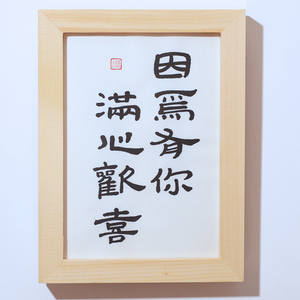 因爲有你
滿心歡喜